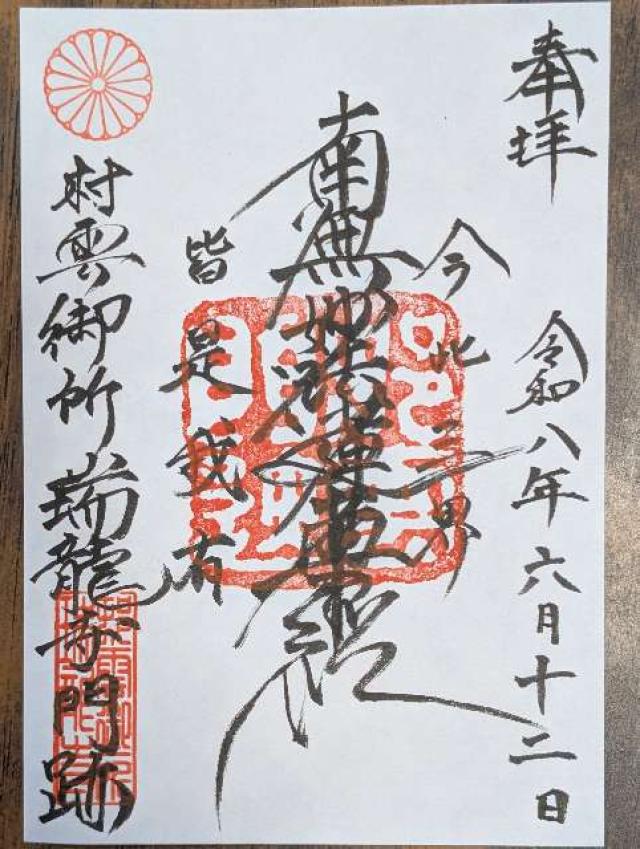 奉拝
令和八年六月十二日
今此三界
南無妙法蓮華経
皆是我有
村雲御所瑞龍寺門跡